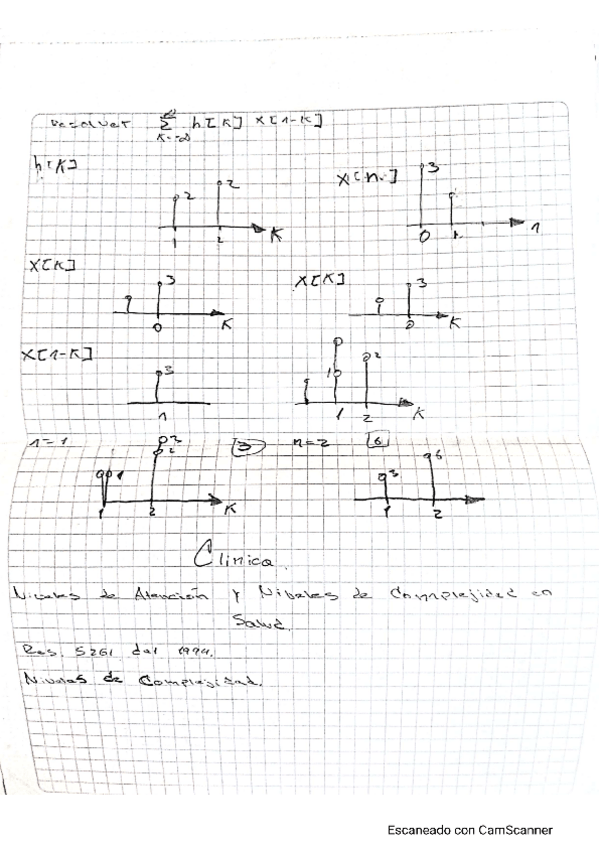 Resolver ∑ h[K] x[1-K]
K=-∞
h[K]
2 2
1 2 K
x[n]
3
0 1 n
x[K]
3
0 K
x[K]
3
0 K
x[1-K]
3
1
1 2
1 2 K
n=1 3 n=2 6
1
1 2 K
3 6
1 2
Clinica.
Niveles de Atención y Nibeles de Complejidad en
Salud.
Res. 5261 del 1994.
Niveles de Complejidad.
Escaneado con CamScanner